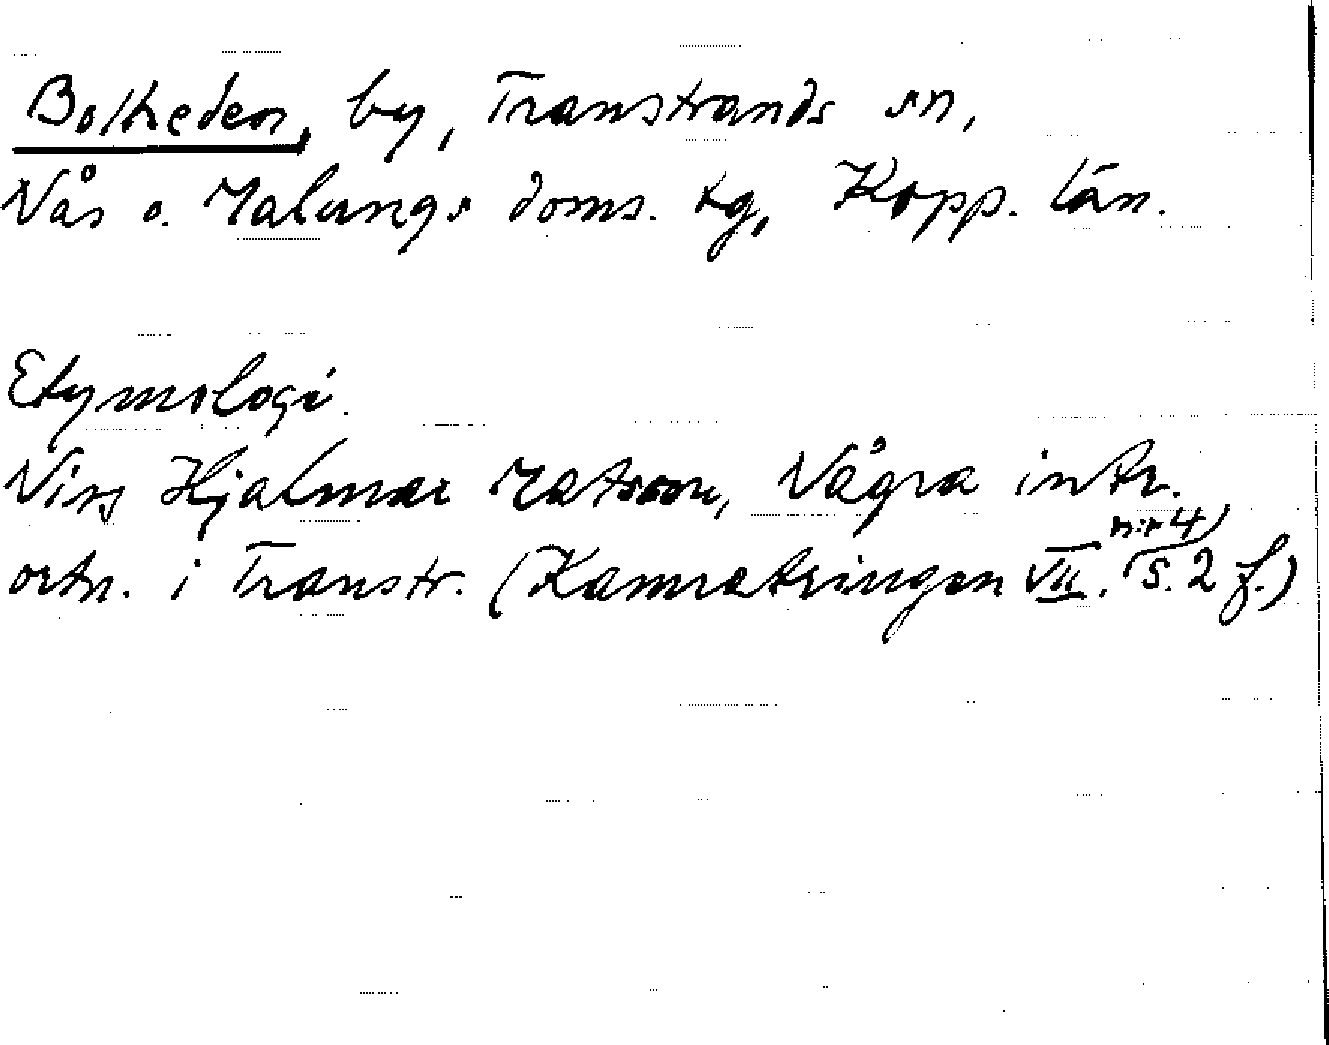 Bolheden, by, Transtrands sn,
Nås o. Malungs doms. tg, Kopp. län.
Etymologi.
Hjalmar Matsson, Några intr.
ortn. i Transtr. (Kamratringen VII. nr 4, s. 2 f.)